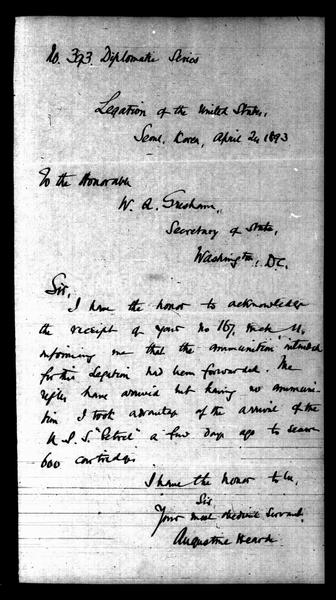 No. 393 Diplomatic Series
Legation of the United States,
Seoul, Korea, April 24, 1893
To the Honorable
W. Q. Gresham,
Secretary of State,
Washington, D.C.
Sir,
I have the honor to acknowledge
the receipt of your No 167, March 11,
informing me that the ammunition intended
for this Legation had been forwarded. The
rifles have arrived but having no ammuni-
tion I took advantage of the arrival of the
U.S.S. "Petrel" a few days ago to secure
600 cartridges.
I have the honor to be,
Sir,
Your most obedient Servant,
Augustine Heard